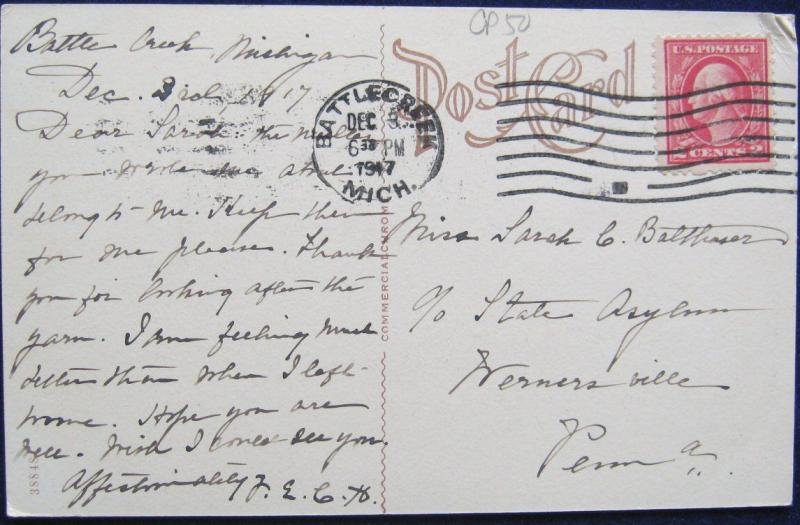 CP 50
Battle Creek, Michigan
Dec. 3rd 1917
Dear Sarah: the needles
you wrote me about
belong to me. Keep them
for me please. Thank
you for looking after the
yarn. I am feeling much
better than when I left
home. Hope you are
well. Wish I could see you.
Affectionately J. E. C. H.
38848
COMMERCIALCHROM
Post Card
BATTLE CREEK
DEC 5
6 30 PM
1917
MICH.
U.S. POSTAGE
2 CENTS 2
Miss Sarah C. Balthaser
c/o State Asylum
Wernersville
Penn a.